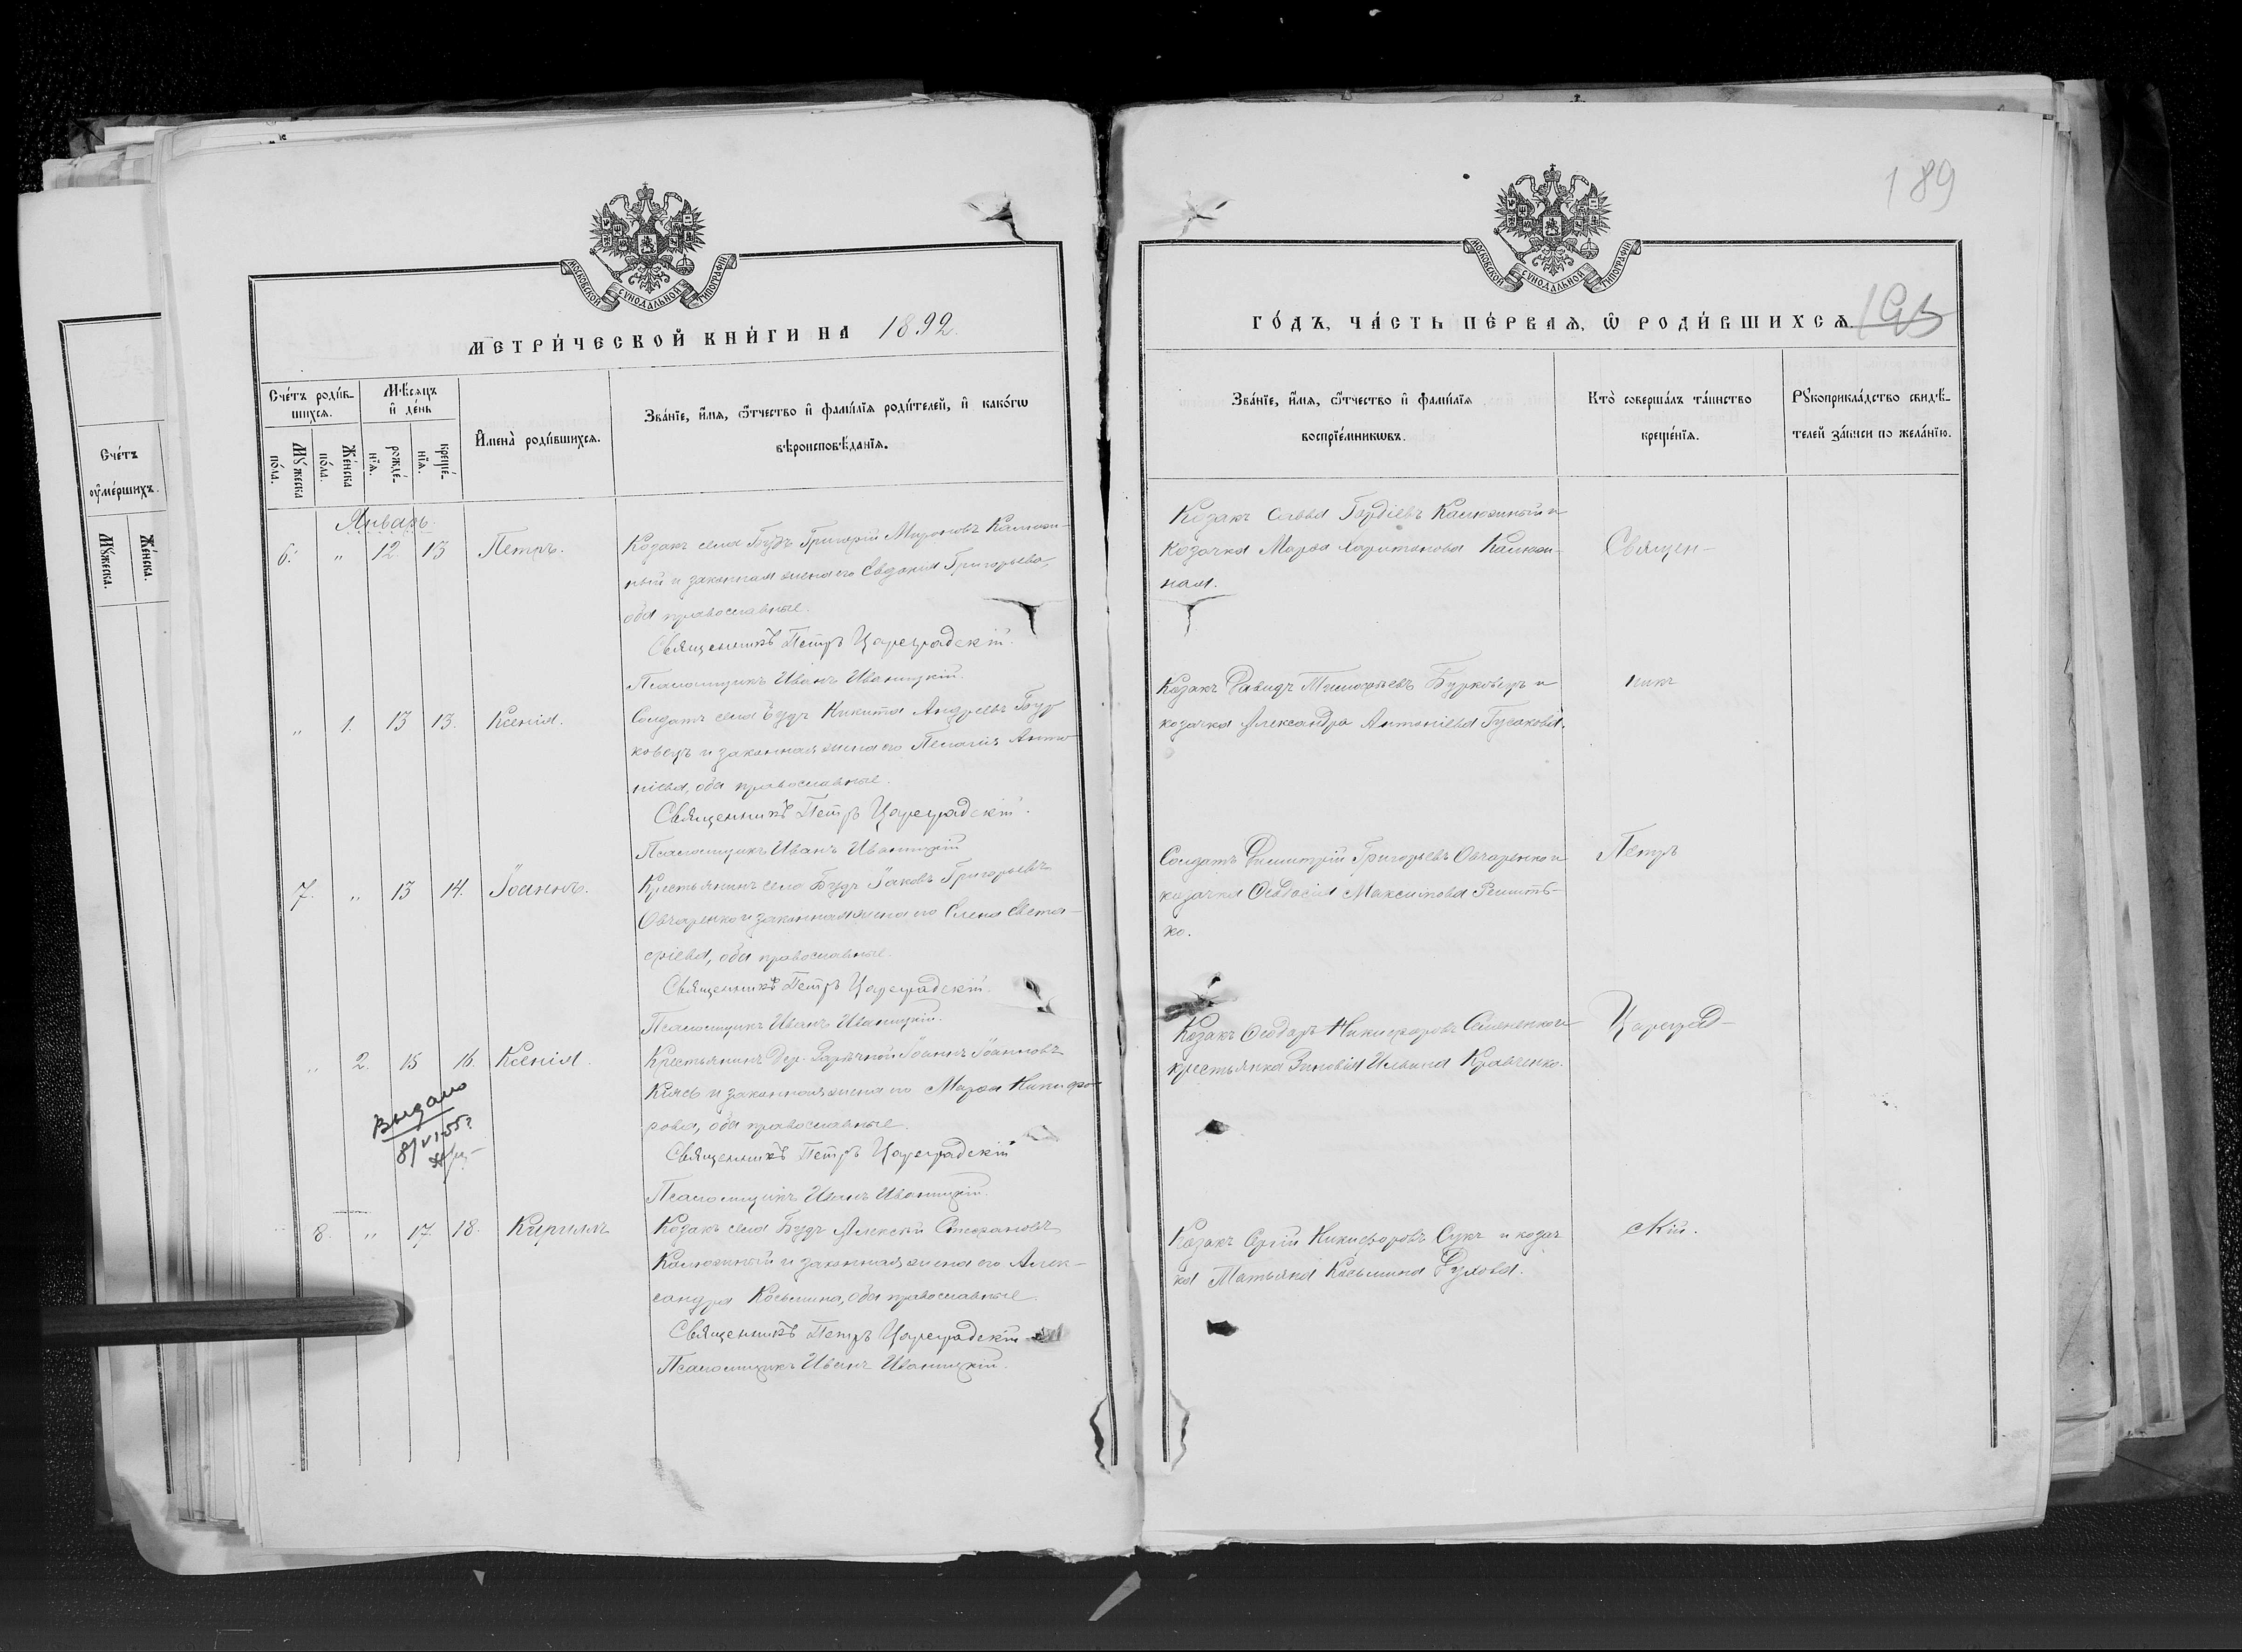 189
МОСКОВСКОЙ СУНОДАЛЬНОЙ ТИПОГРАФІИ
МОСКОВСКОЙ СУНОДАЛЬНОЙ ТИПОГРАФІИ
МЕТРИ́ЧЕСКОЙ КНИ́ГИ НА 1892.
ГО́ДЪ, ЧА́СТЬ ПЕ́РВАѦ, Ѿ РОДИ́ВШИХСѦ.
Сче́тъ
оу҆ме́ршихъ.
Мꙋ́жеска.
Же́нска.
Сче́тъ роди́вшихсѧ.
Мꙋ́жеска по́ла.
Же́нска по́ла.
Мѣ́сѧцъ и҆ де́нь
рожде́нїѧ.
креще́нїѧ.
И҆мена̀ роди́вшихсѧ.
Зва́нїе, и҆́мѧ, ѻ҆́тчество и҆ фами́лїѧ роди́телей, и҆ како́гѡ
вѣроисповѣ́данїѧ.
Зва́нїе, и҆́мѧ, ѻ҆́тчество и҆ фами́лїѧ
воспрїе́мникѡвъ.
Кто̀ соверша́лъ та́инство
креще́нїѧ.
Рꙋкоприкла́дство свидѣ́-
телей за́писи по жела́нїю.
Январь.
6. " 12. 13 Петръ.
Козакъ села Будъ Григорій Мироновъ Калюж-
ный и законная жена его Евдокія Григорьева,
оба православные.
Священникъ Петръ Цареградскій.
Псаломщикъ Иванъ Иваницкій.
Козакъ Савва Гордіевъ Калюжный и
козачка Марѳа Харитонова Калюж-
ная.
Священ-
" 1. 13 13. Ксенія.
Солдатъ села Будъ Никита Андреевъ Бур
ковецъ и законная жена его Пелагія Анто
ніева, оба православные.
Священникъ Петръ Цареградскій.
Псаломщикъ Иванъ Иваницкій
Козакъ Давидъ Тимоѳеевъ Бурковецъ и
козачка Александра Антоніева Гусакова.
никъ
7. " 13 14. Іоаннъ.
Крестьянинъ села Будъ Іаковъ Григорьевъ
Овчаренко и законная жена его Елена Евста-
фіева, оба православные.
Священникъ Петръ Цареградскій.
Псаломщикъ Иванъ Иваницкій.
Солдатъ Димитрій Григорьевъ Овчаренко и
козачка Ѳеодосія Максимова Решить-
ко.
Петръ
" 2. 15 16. Ксенія.
Крестьянинъ Дер. Заречной Іоаннъ Іоанновъ
Князь и законная жена его Марѳа Никифо
рова, оба православные.
Священникъ Петръ Цареградскій
Псаломщикъ Иванъ Иваницкій.
Козакъ Ѳеодоръ Никифоровъ Семененко и
крестьянка Зиновія Ильина Кравченко.
Цареград-
Выдано
8/VI-55г
8. " 17. 18. Кириллъ
Козакъ села Будъ Алексій Стефановъ
Калюжный и законная жена его Алек-
сандра Косьмина, оба православные.
Священникъ Петръ Цареградскій
Псаломщикъ Иванъ Иваницкій.
Козакъ Сергій Никифоровъ Сукъ и козач
ка Татьяна Косьмина
скій.